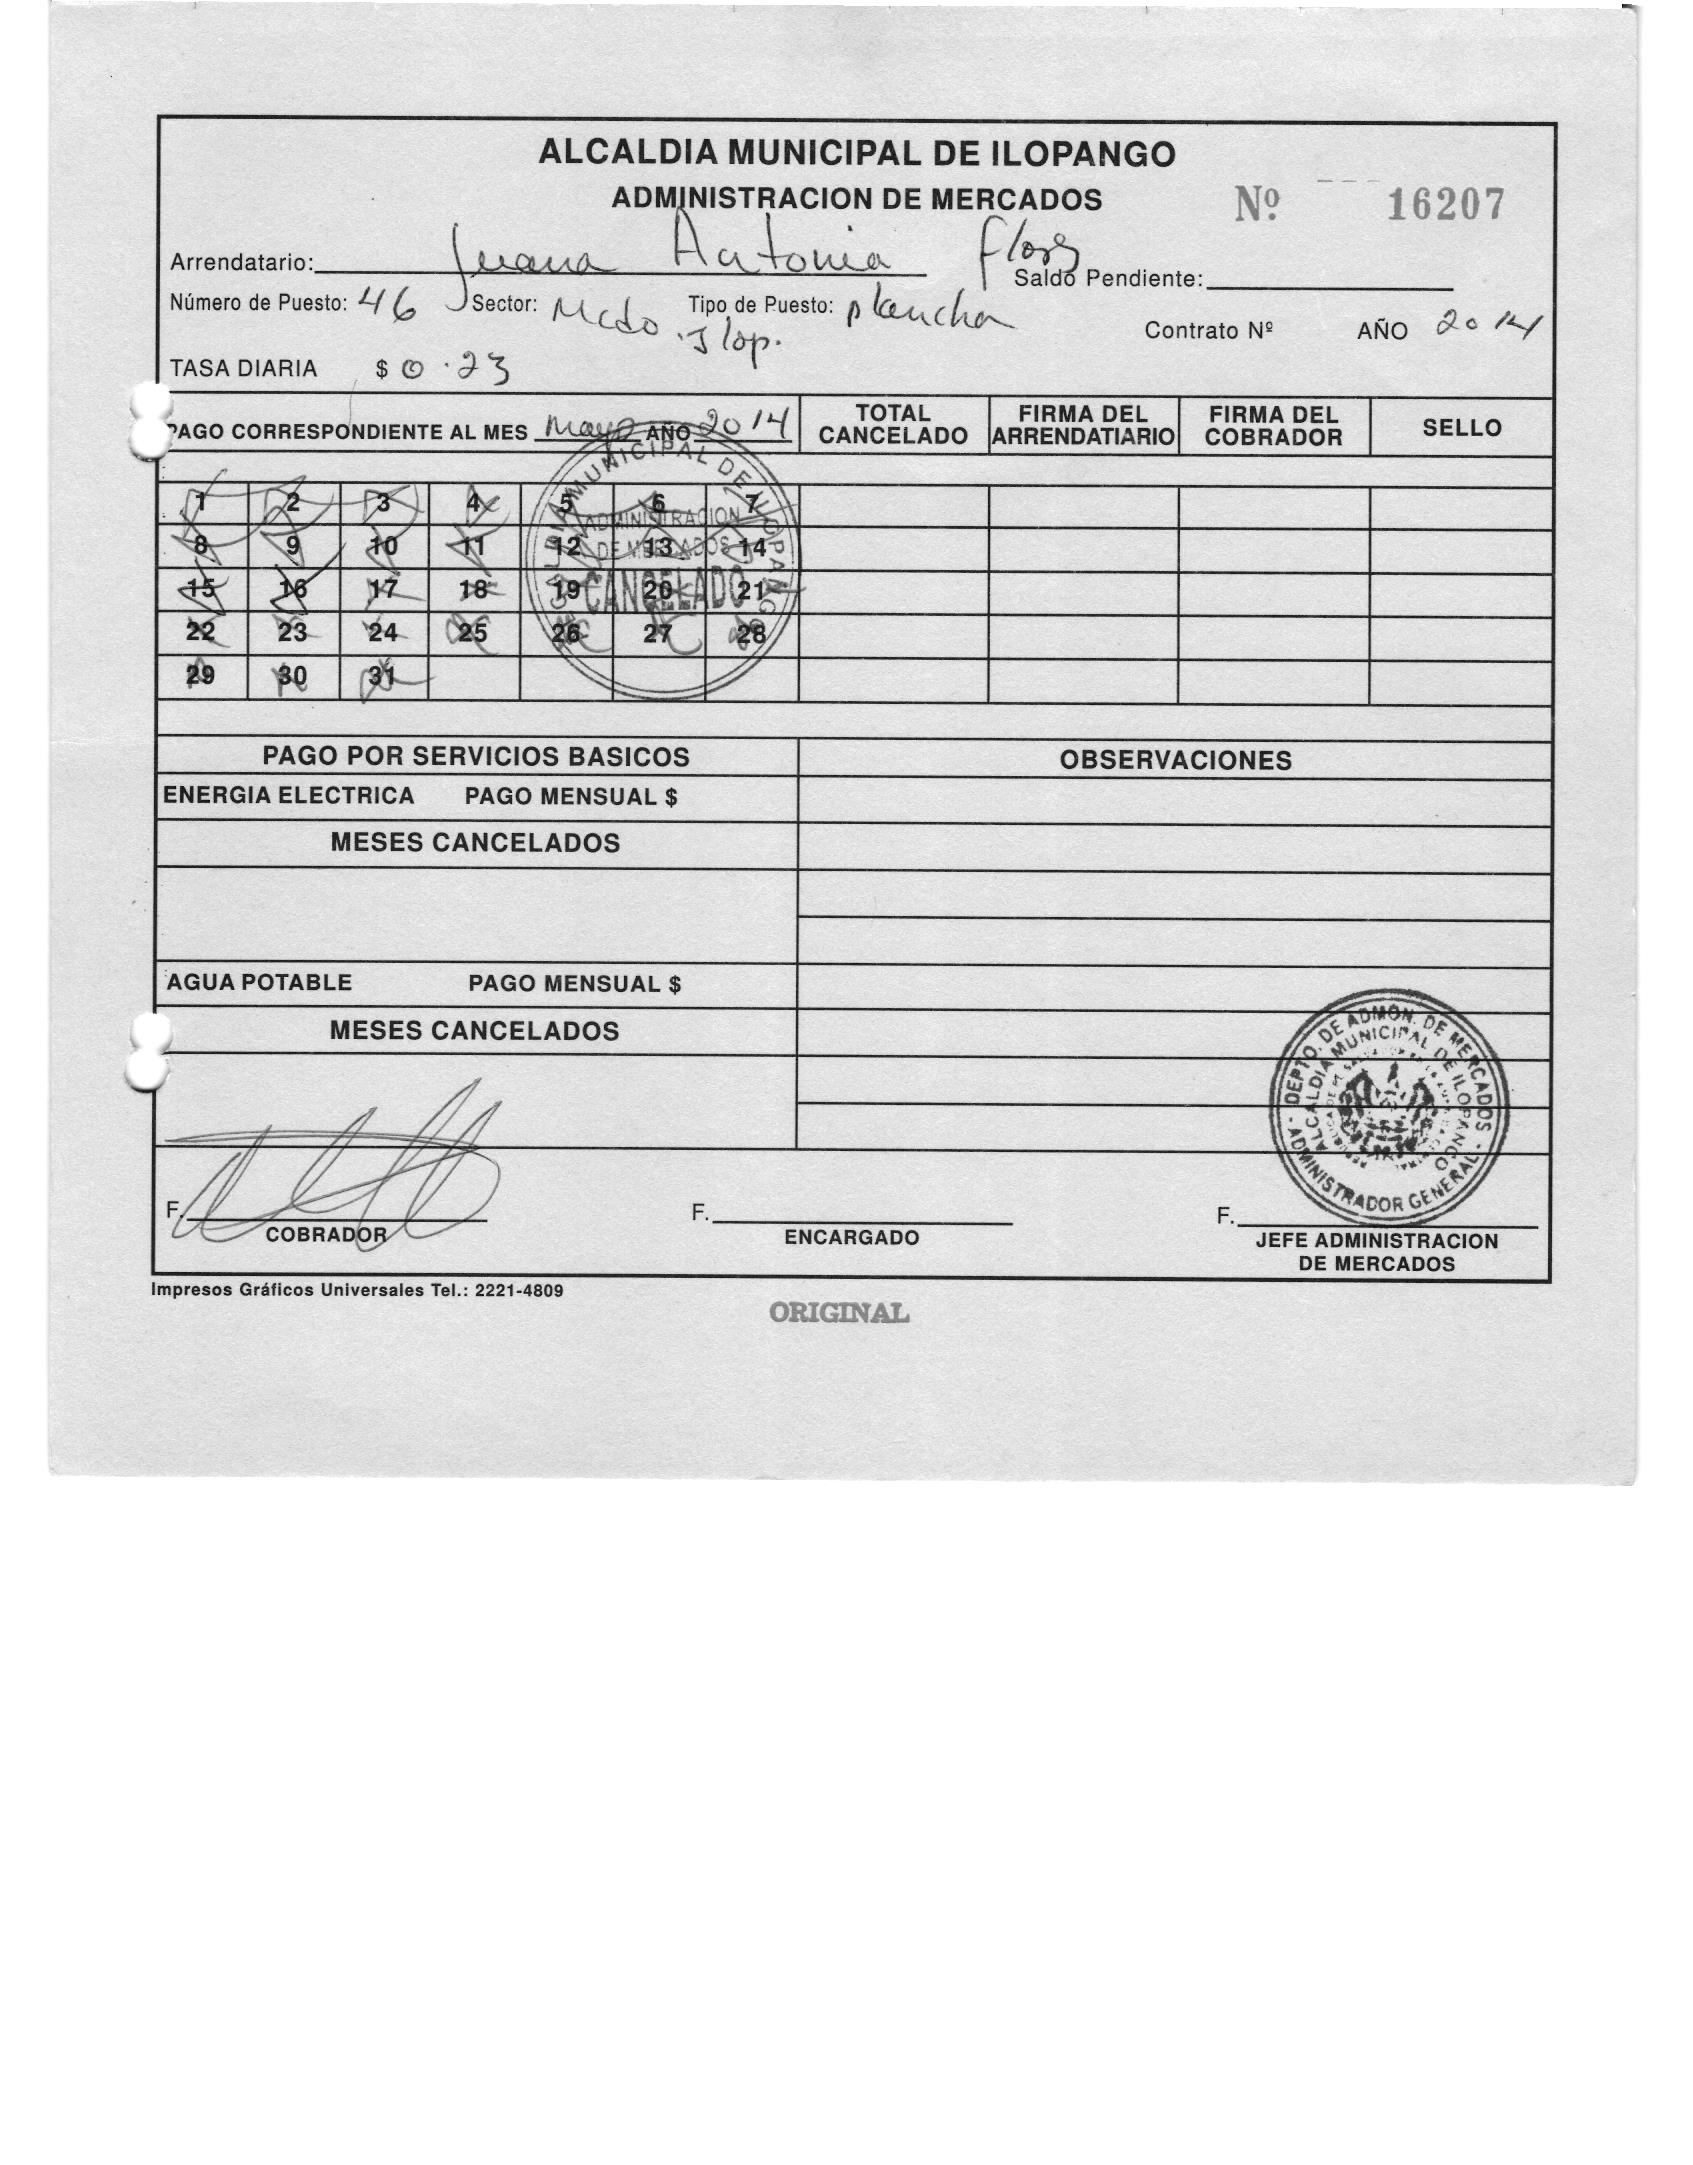 ALCALDIA MUNICIPAL DE ILOPANGO
ADMINISTRACION DE MERCADOS
Nº 16207
Arrendatario: Juana Antonia Flores
Saldo Pendiente:
Número de Puesto: 46 Sector: Mcdo. Ilop. Tipo de Puesto: plancha
Contrato Nº AÑO 2014
TASA DIARIA $ 0.23
PAGO CORRESPONDIENTE AL MES Mayo AÑO 2014
TOTAL CANCELADO
FIRMA DEL ARRENDATIARIO
FIRMA DEL COBRADOR
SELLO
1 2 3 4 5 6 7
8 9 10 11 12 13 14
15 16 17 18 19 20 21
22 23 24 25 26 27 28
29 30 31
ALCALDIA MUNICIPAL DE ILOPANGO
ADMINISTRACION
DE MERCADOS
CANCELADO
PAGO POR SERVICIOS BASICOS
OBSERVACIONES
ENERGIA ELECTRICA PAGO MENSUAL $
MESES CANCELADOS
AGUA POTABLE PAGO MENSUAL $
MESES CANCELADOS
DEPTO. DE ADMON. DE MERCADOS
ALCALDIA MUNICIPAL DE ILOPANGO
ADMINISTRADOR GENERAL
F.
COBRADOR
F.
ENCARGADO
F.
JEFE ADMINISTRACION
DE MERCADOS
Impresos Gráficos Universales Tel.: 2221-4809
ORIGINAL